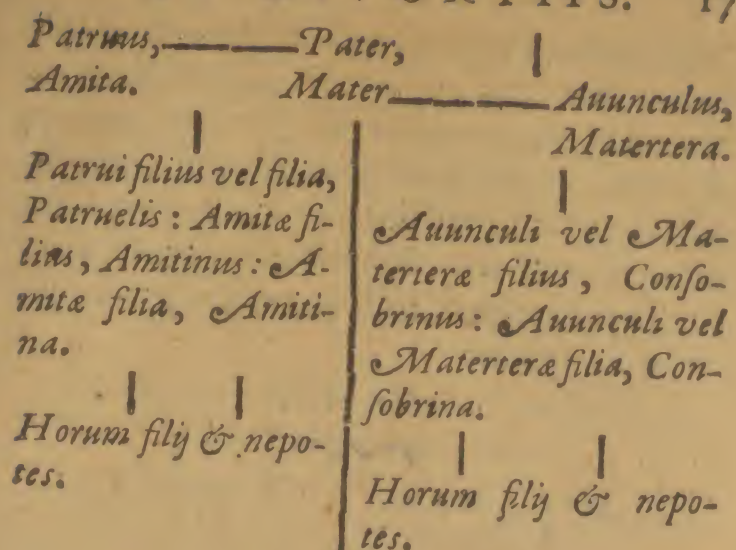 Patruus, Pater,
Amita. Mater Auunculus,
Matertera.
Patrui filius vel filia,
Patruelis: Amitæ fi-
lius, Amitinus: A-
mitæ filia, Amiti-
na.
Horum filij & nepo-
tes.
Auunculi vel Ma-
terteræ filius, Conso-
brinus: Auunculi vel
Materteræ filia, Con-
sobrina.
Horum filij & nepo-
tes.